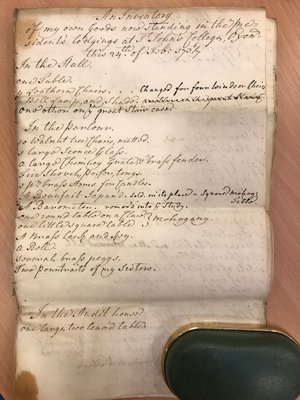 An Inventory
of my own goods now standing in the Pre-
sident's lodgings at St Johns College, Oxon
this 24th of Febr. 1757
In the Hall.
one Table.
Leathorn Chairs. . . . changed for four windsor Chairs
a Bell Lamp, and Shade
one other only great Stair case
In the parlour.
10 walnut tree Chairs, matted.
a large Sconce Glass.
a large Chimney Grate & brass fender.
fire Shovel, poker, tongs.
2 pr brass Arms for Candles.
A Beaufait Japand. sold, in its place a Squared mahog.
Table.
a Barometer. removd into ye Study.
one round table on a Claw } mahogany.
one little square table
A brass Lock and Key.
a Bell.
several brass peggs.
Two Pourtraits of my Sisters.
In the Audit house
one large, two leav'd table